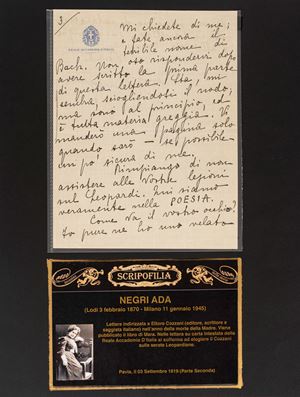 3
REALE ACCADEMIA D'ITALIA
Mi chiedete di me;
e fate ancora il
terribile nome di
Bach. Non oso rispondervi dopo
avere scritto la prima parte
di questa lettera. Sto, mi
sembra, sciogliendo il nodo;
ma sono al principio, ed
è tutta materia greggia. Vi
manderò una pagina solo
quando sarò – se possibile –
un po' sicura di me.
Rimpiango di non
assistere alle Vostre lezioni
sul Leopardi. Lui siamo
veramente nella POESIA.
Come va il vostro occhio?
Io pure ne ho uno velato
SCRIPOFILIA
NEGRI ADA
(Lodi 3 febbraio 1870 - Milano 11 gennaio 1945)
Lettere indirizzata a Ettore Cozzani (editore, scrittore e
saggista italiano) nell'anno della morte della Madre. Viene
pubblicato il libro di Mara. Nella lettera su carta intestata della
Reale Accademia D'Italia si sofferma ad elogiare il Cozzani
sulle serate Leopardiane.
Pavia, il 03 Settembre 1919 (Parte Seconda)